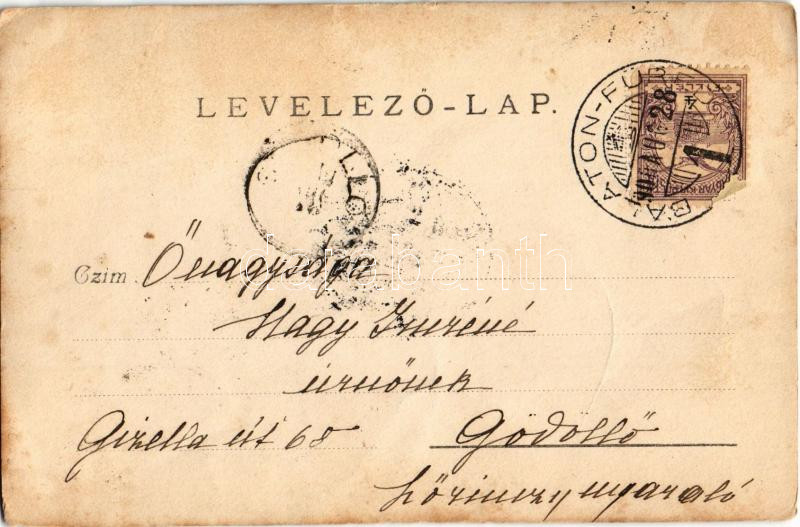 LEVELEZŐ-LAP.
BALATON-FÜRED
AUG 28
LLŐ
Czim Őnagysága
Nagy Imréné
úrnőnek
Gizella út 68 Gödöllő
Lőrinczy nyaraló
darabanth